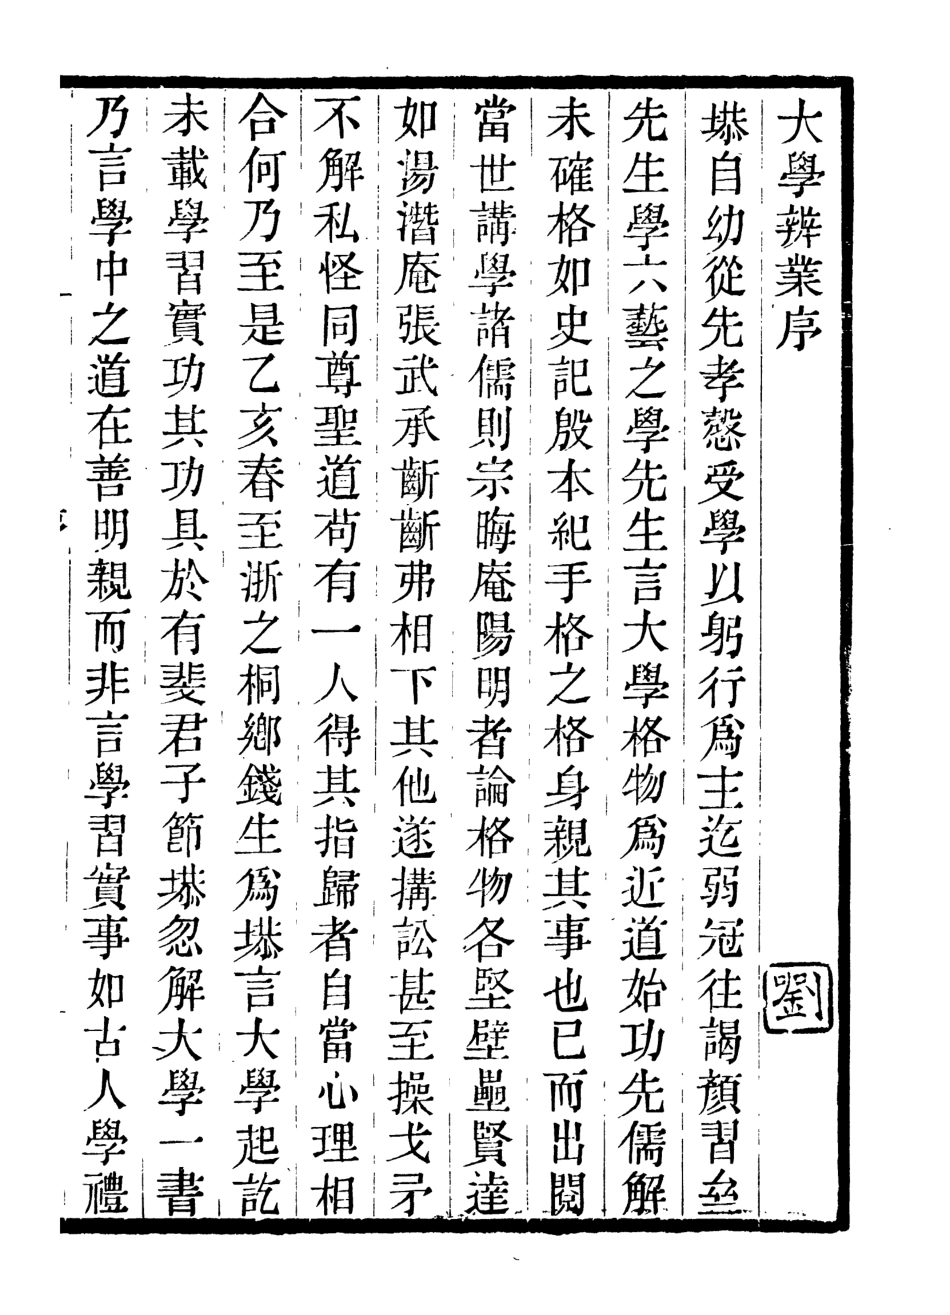 大學辨業序
劉
塨自幼從先孝慤受學以躬行爲主迄弱冠往謁顏習𡉏
先生學六藝之學先生言大學格物爲近道始功先儒解
未確格如史記殷本紀手格之格身親其事也已而出閱
當世講學諸儒則宗晦庵陽明者論格物各堅壁壘賢達
如湯潛庵張武承齗齗弗相下其他遂搆訟甚至操戈矛
不解私怪同尊聖道苟有一人得其指歸者自當心理相
合何乃至是乙亥春至浙之桐鄉錢生爲塨言大學起訖
未載學習實功其功具於有斐君子節塨忽解大學一書
乃言學中之道在善明親而非言學習實事如古人學禮